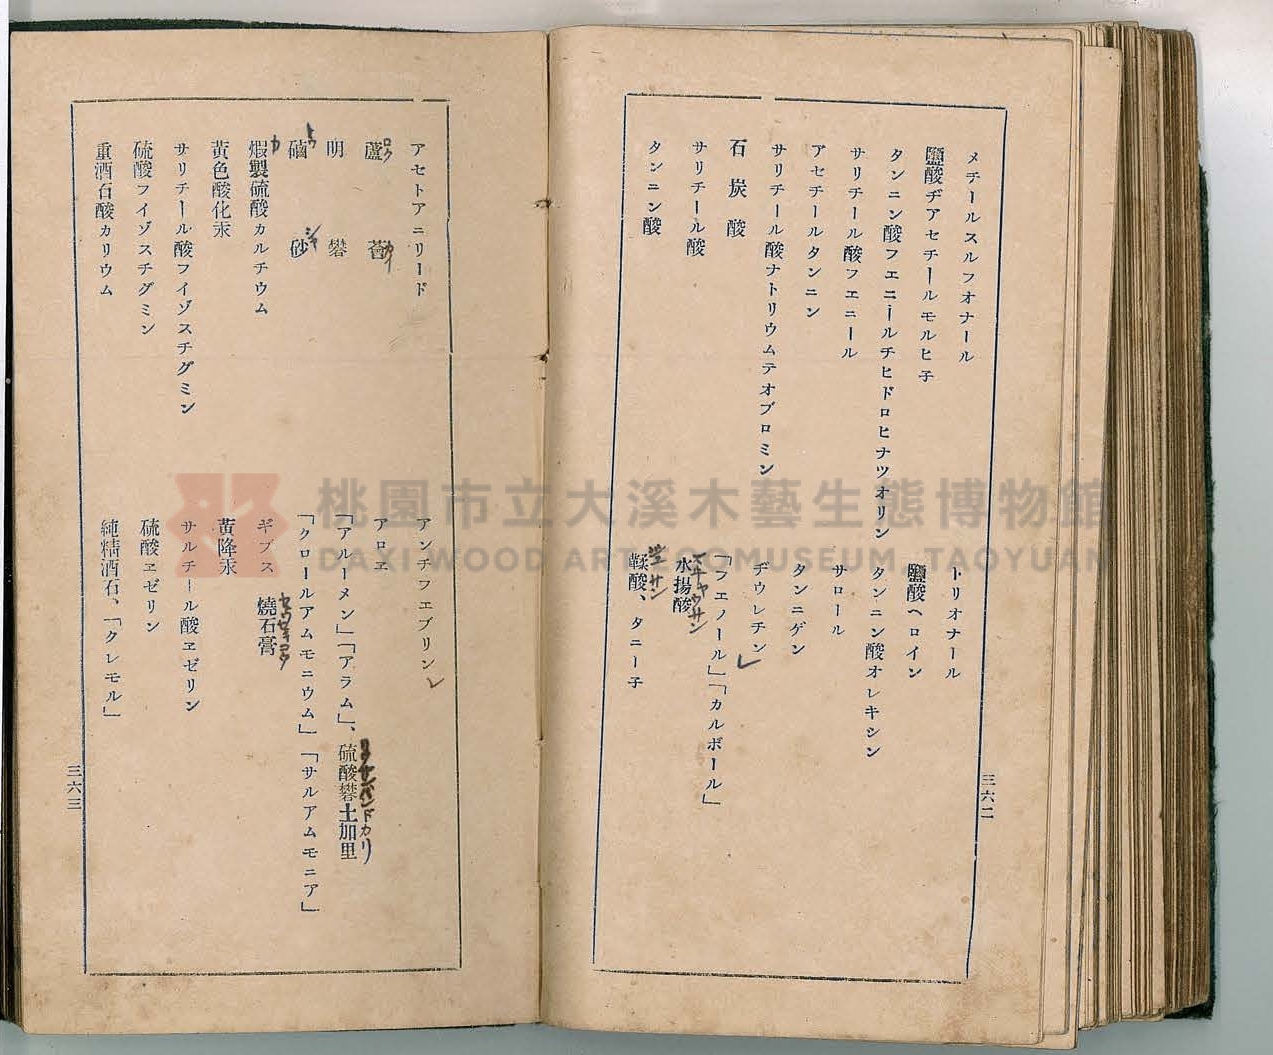 メチールスルフオナール　トリオナール
鹽酸ヂアセチールモルヒ子　鹽酸ヘロイン
タンニン酸フエニールチヒドロヒナツオリン　タンニン酸オレキシン
サリチール酸フェニール　サロール
アセチールタンニン　タンニゲン
サリチール酸ナトリウムテオブロミン　ヂウレチン
石炭酸　「フエノール」「カルボール」
サリチール酸　水揚酸
タンニン酸　鞣酸、タニー子
三六二
アセトアニリード　アンチフエブリン
蘆薈　アロエ
ロク　カイ
明礬　「アルーメン」「アラム」、硫酸礬土加里
磠砂　「クロールアムモニウム」「サルアムモニア」
煆製硫酸カルチウム　ギプス　燒石膏
黄色酸化汞　黄降汞
サリチール酸フイゾスチグミン　サルチール酸ヱゼリン
硫酸フイゾスチグミン　硫酸ヱゼリン
重酒石酸カリウム　純精酒石、「クレモル」
三六三
桃園市立大溪木藝生態博物館
DAXI WOOD ART ECOMUSEUM, TAOYUAN